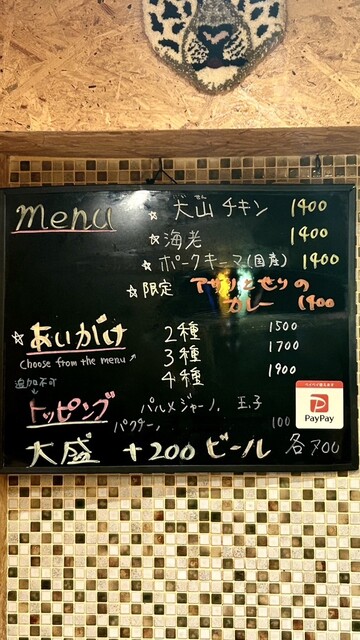 menu ☆ 大山チキン 1400
☆ 海老 1400
☆ ポークキーマ(国産) 1400
☆ 限定 アサリとせりの
カレー 1400
☆ あいがけ 2種 1500
Choose from the menu ↗ 3種 1700
4種 1900
追加不可
トッピング パルメジャーノ, 王子
パクチー, 100
大盛 +200 ビール 各700
PayPay